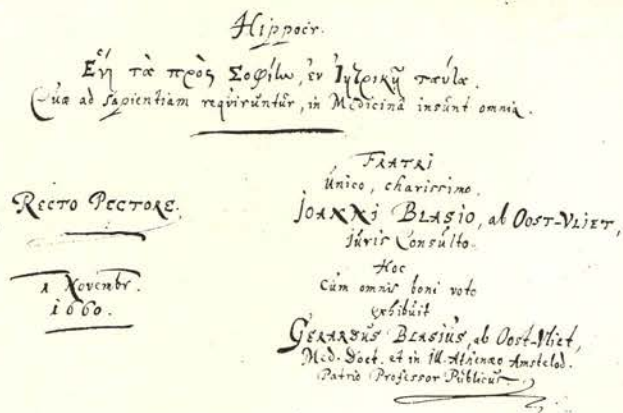 Hippocr.
Ἔνι τὰ πρὸς Σοφίην, ἐν Ἰητρικῇ πάντα.
Quæ ad sapientiam requiruntur, in Medicinâ insunt omnia.
RECTO PECTORE.
1 Novembr.
1660.
FRATRI
Unico, charissimo.
IOANNI BLASIO, ab OOST-VLIET,
Juris Consulto.
Hoc
Cum omnis boni voto
exhibuit
GERARDUS BLASIUS, ab Oost-Vliet,
Med. Doct. et in ill. Athenæo Amstelod.
Patrio Professor Publicus.